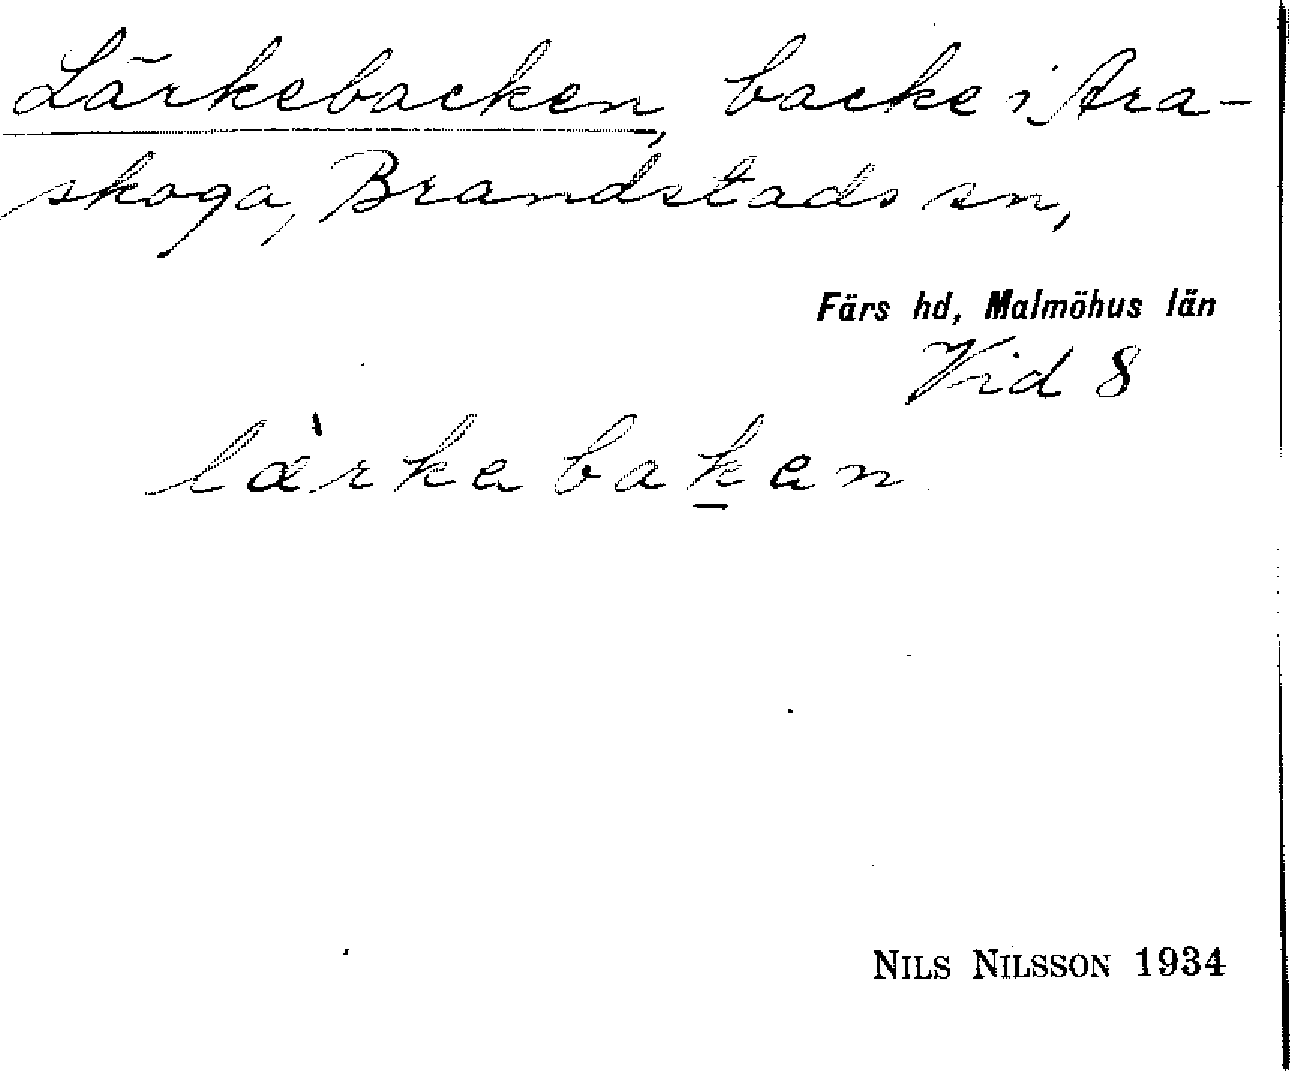 Lärkebacken, backe i Ara-
skoga, Brandstads sn,
Färs hd, Malmöhus län
Vid 8
læ̀rkebak̲en
NILS NILSSON 1934